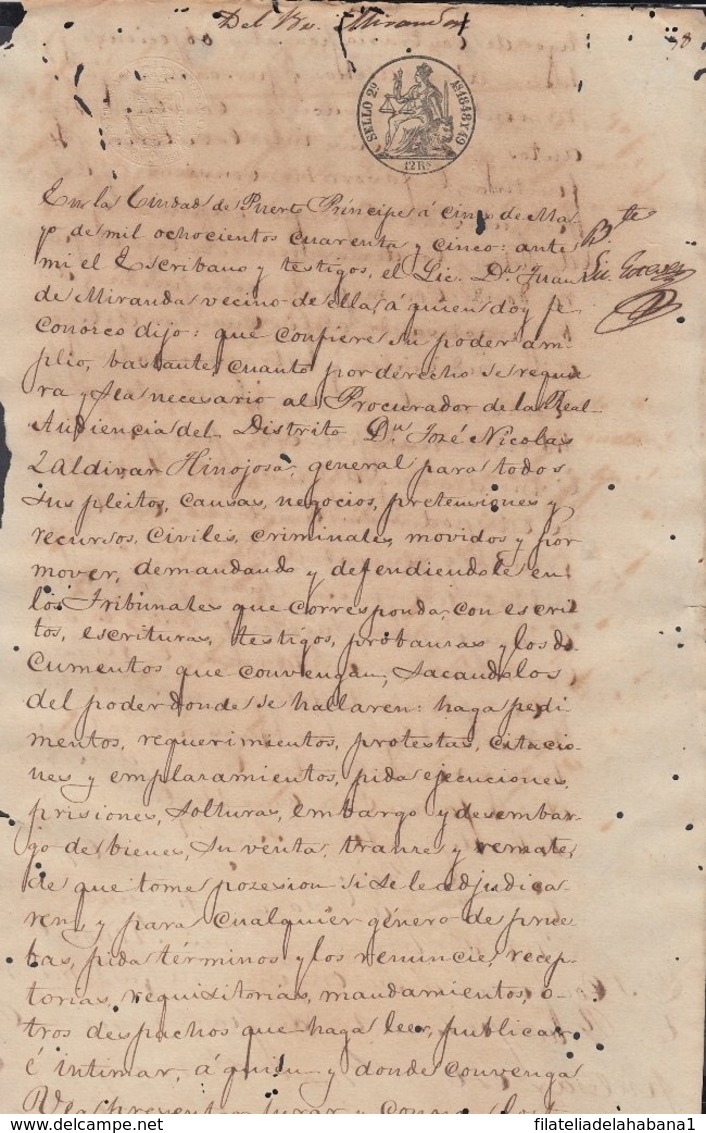 Del Be. Miranda
8
SELLO 2º
1848 Y 49
12 Rs
En la Ciudad de Puerto Príncipe á cinco de Ma
yo de mil ochocientos cuarenta y cinco: ante
Bte
mi el Escribano y testigos, el Lic. Dn. Juan
de Miranda vecino de ella, á quien doy fe
conosco dijo: que confiere su poder am-
plio, bastante, cuanto por derecho se requie
ra y sea necesario al Procurador de la Real
Audiencia del Distrito Dn. José Nicolas
Zaldivar Hinojosa, general para todos
sus pleitos, causas, negocios, pretensiones y
recursos, civiles, criminales, movidos y por
mover, demandando y defendiendole en
los Tribunales que corresponda, con escri
tos, escrituras, testigos, probanzas y los do
cumentos que convengan, sacandolos
del poder donde se hallaren: haga pedi
mentos, requerimientos, protestas, citacio-
nes y emplazamientos, pida ejecuciones,
prisiones, solturas, embargo y desembar-
go de bienes, su venta, trance y remate,
de que tome posesion si se le adjudica
ren, y para cualquier género de prue
bas, pida términos y los renuncie, recep-
torias, requisitorias, mandamientos, o-
tros despachos que haga leer, publicar
é intimar, á quien y donde convenga
filateliadelahabana1